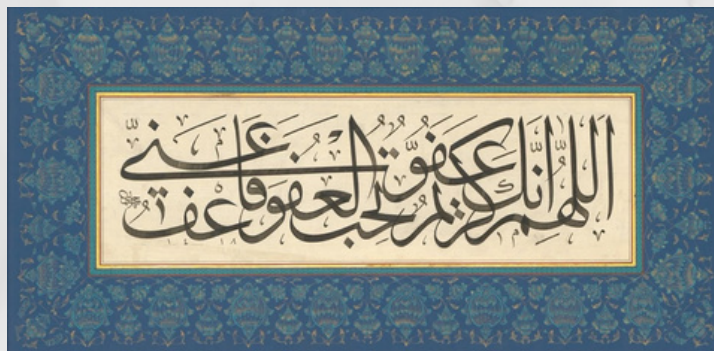 اللهم إنك عفو كريم تحب العفو فاعف عني
١٤١٨